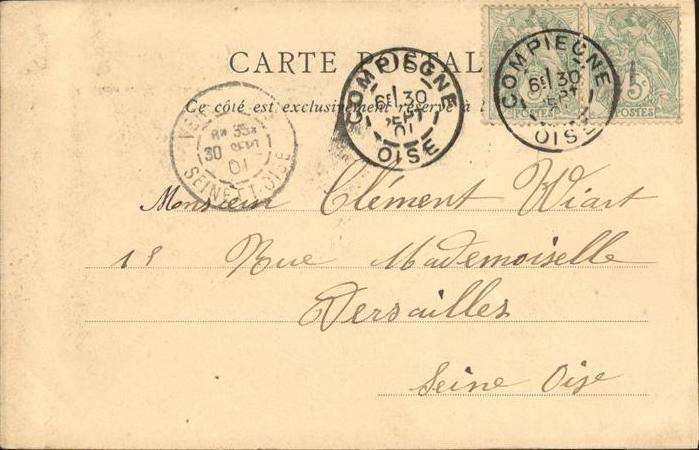 CARTE POSTAL
Ce côté est exclusivement réservé à l
COMPIEGNE
6E 30
SEPT
01
OISE
COMPIEGNE
6E 30
SEPT
01
OISE
5c
POSTES
30 SEPT
01
SEINE ET OISE
Monsieur Clément Wiart
Rue Mademoiselle
Versailles
Seine Oise